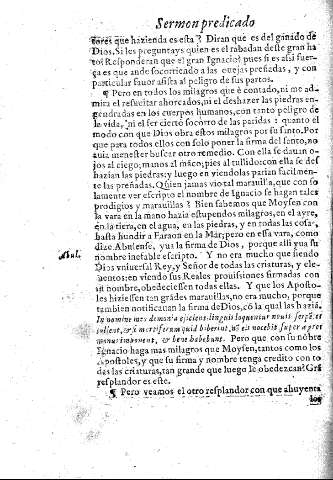 Sermon predicado
tores que hazienda es esta? Diran que es del ganado de
Dios. Si les preguntays quien es el rabadan deste gran ha
to? Responderan que el gran Ignacio! pues si es assi fuer-
ça es que ande socorriendo a las ouejas preñadas, y con
particular fauor assista al peligro de sus partos.
¶ Pero en todos los milagros que è contado, ni me ad-
mira el resucitar ahorcados, ni el deshazer las piedras en-
gendradas en los cuerpos humanos, con tanto peligro de
la vida, ni el ser cierto socorro de las paridas: quanto el
modo con que Dios obra estos milagros por su santo. Por
que para todos ellos con solo poner la firma del santo, no
auia menester buscar otro remedio. Con ella se dauan o-
jos al ciego, manos al máco, pies al tullido: con ella se des
hazian las piedras; y luego en viendolas parian facilmen-
te las preñadas. Quien jamas vio tal marauilla, que con so
lamente ver escripto el nombre de Ignacio se hagan tales
prodigios y marauillas? Bien sabemos que Moysen con
la vara en la mano hazia estupendos milagros, en el ayre,
en la tierra, en el agua, en las piedras, y en todas las cosas,
hasta hundir a Faraon en la Mar; pero en essa vara, como
Abul. dize Abulense, yua la firma de Dios, porque alli yua su
nombre inefable escripto. Y no era mucho que siendo
Dios vniuersal Rey, y Señor de todas las criaturas, y ele-
mentos: en viendo sus Reales prouissiones firmadas con
su nombre, obedeciessen todas ellas. Y que los Aposto-
les hiziessen tan grádes marauillas, no era mucho, porque
tambien notificauan la firma de Dios, có la qual las haziá.
In nomine meo demonia eijcient. linguis loquentur nouis. serpētes
tollent, & si mortiferum quid biberint, nō eis nocebit super ægros
manus imponent, & bene habebunt. Pero que con su nōbre
Ignacio haga mas milagros que Moysen, tantos como los
Apostoles, y que su firma y nombre tenga credito con to
das las criaturas, tan grande que luego le obedezcan? Grá
resplandor es este.
¶ Pero veamos el otro resplandor con que ahuyenta
los